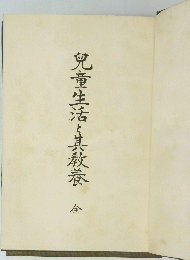 兒童生活と其教養
全